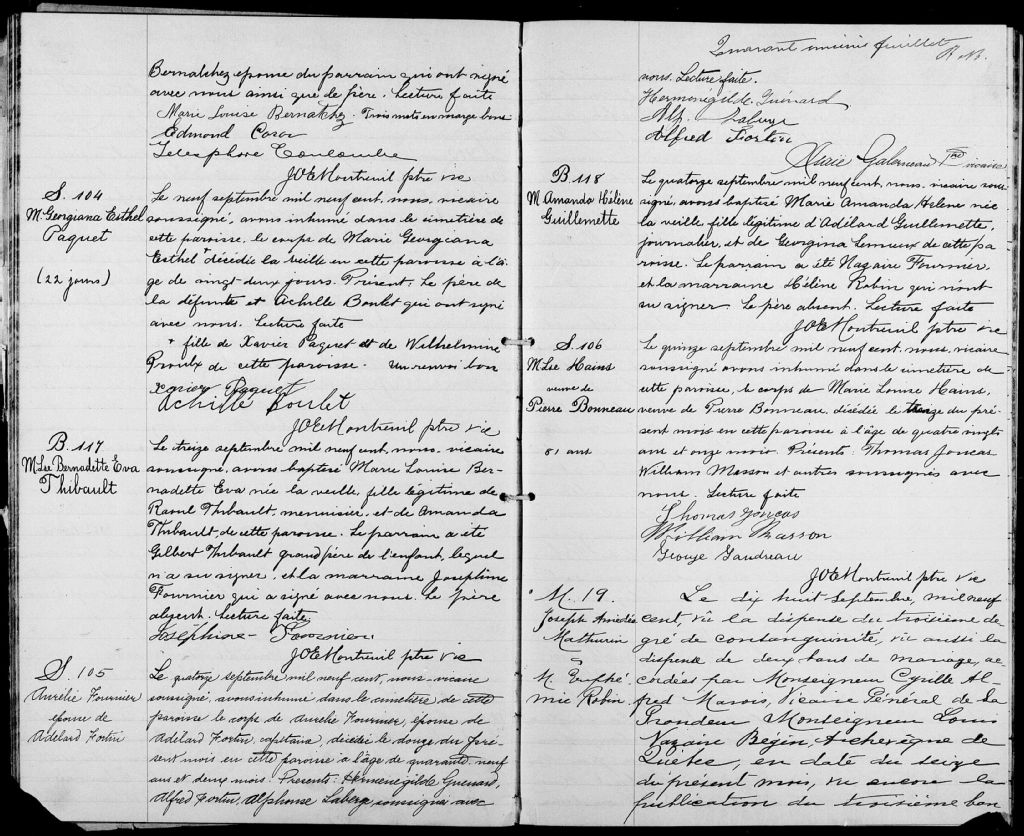 Bernatchez epouse du parrain qui ont signé
avec nous ainsi que le père. Lecture faite
Marie Louise Bernatchez. Trois mots en marge bons
Edmond Caron
Telesphore Coulombe
JOEMontreuil ptre vic
S. 104
M. Georgiana Esthel
Paquet
(22 jours)
Le neuf septembre mil neuf cent, nous, vicaire
soussigné, avons inhumé dans le cimetière de
cette paroisse, le corps de Marie Georgiana
Esthel décédée la veille en cette paroisse à l'â-
ge de vingt-deux jours. Présent, Le père de
la défunte et Achille Boulet qui ont signé
avec nous. Lecture faite
* fille de Xavier Paquet et de Wilhelmine
Proulx de cette paroisse. Un renvoi bon
Xavier Paquet
Achille Boulet
JOEMontreuil ptre vic
B. 117
M. Lse Bernadette Eva
Thibault
Le treize septembre mil neuf cent, nous, vicaire
soussigné, avons baptisé Marie Louise Ber-
nadette Eva née la veille, fille légitime de
Raoul Thibault, menuisier, et de Amanda
Thibault de cette paroisse. Le parrain a été
Gilbert Thibault grand père de l'enfant, lequel
n'a su signer, et la marraine Joséphine
Fournier qui a signé avec nous. Le père
absent. Lecture faite
Joséphine Fournier
JOEMontreuil ptre vic
S. 105
Aurélie Fournier
epouse de
Adélard Fortin
Le quatorze septembre mil neuf cent, nous, vicaire
soussigné, avons inhumé dans le cimetière de cette
paroisse le corps de Aurélie Fournier, épouse de
Adélard Fortin, capitaine, décédée le douze du pré-
sent mois en cette paroisse à l'âge de quarante-neuf
ans et deux mois. Présents: Herménégilde Guénard,
Alfred Fortin, Alphonse Laberge, soussignés avec
Quarant unième feuillet
nous. Lecture faite.
Herménégilde Guénard
Alp. Laberge
Alfred Fortin
Galerneau Ptre vicaire
B. 118
M. Amanda Hélène
Guillemette
Le quatorze septembre mil neuf cent, nous, vicaire sous-
signé, avons baptisé Marie Amanda Hélène née
la veille, fille légitime d'Adélard Guillemette,
journalier, et de Georgina Lemieux de cette pa
roisse. Le parrain a été Nazaire Fournier,
et la marraine Hélène Robin qui n'ont
su signer. Le père absent. Lecture faite
JOEMontreuil ptre vic
S. 106
M. Lse Hains
veuve de
Pierre Bonneau
81 ans
Le quinze septembre mil neuf cent, nous, vicaire
soussigné avons inhumé dans le cimetière de
cette paroisse, le corps de Marie Louise Hains,
veuve de Pierre Bonneau, décédée le treize du pré-
sent mois en cette paroisse à l'âge de quatre vingts
ans et onze mois. Présents: Thomas Joncas
William Masson et autres soussignés avec
nous. Lecture faite
Thomas Joncas
William Masson
George Gaudreau
JOEMontreuil ptre vic
M. 19.
Joseph Amédée
Mathurin
&
M. Euphé-
mie Robin.
Le dix huit Septembre, mil neuf
cent, vu la dispense du troisième de-
gré de consanguinité, vu aussi la
dispense de deux bans de mariage, ac-
cordées par Monseigneur Cyrille Al-
fred Marois, Vicaire Général de Sa
Grandeur Monseigneur Louis
Nazaire Bégin, Archevêque de
Québec, en date du seize
du présent mois, vu encore la
publication du troisième ban